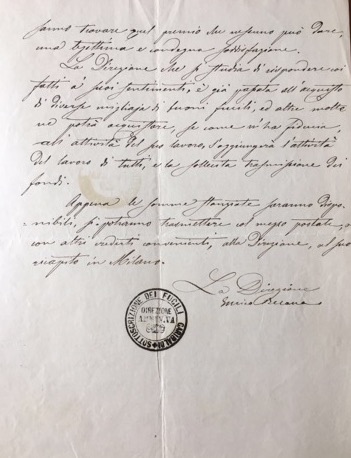 sanno trovare quel premio che nessuno può dare,
una legittima e condegna soddisfazione.
La Direzione che si studia di rispondere coi
fatti a' suoi sentimenti, è già passata all'acquisto
di diverse migliaja di buoni fucili, ed altre molte
ne potrà acquistare, se come n'ha fiducia,
all'attività del suo lavoro, s'aggiungerà l'attività
del lavoro di tutti, e la sollecita trasmissione dei
fondi.
Appena le somme stanziate saranno dispo-
nibili, si potranno trasmettere col mezzo postale, o
con altri creduti convenienti, alla Direzione, al suo
recapito in Milano.
La Direzione
Enrico Besana
SOTTOSCRIZIONE DEI FUCILI GARIBALDI
DIREZIONE